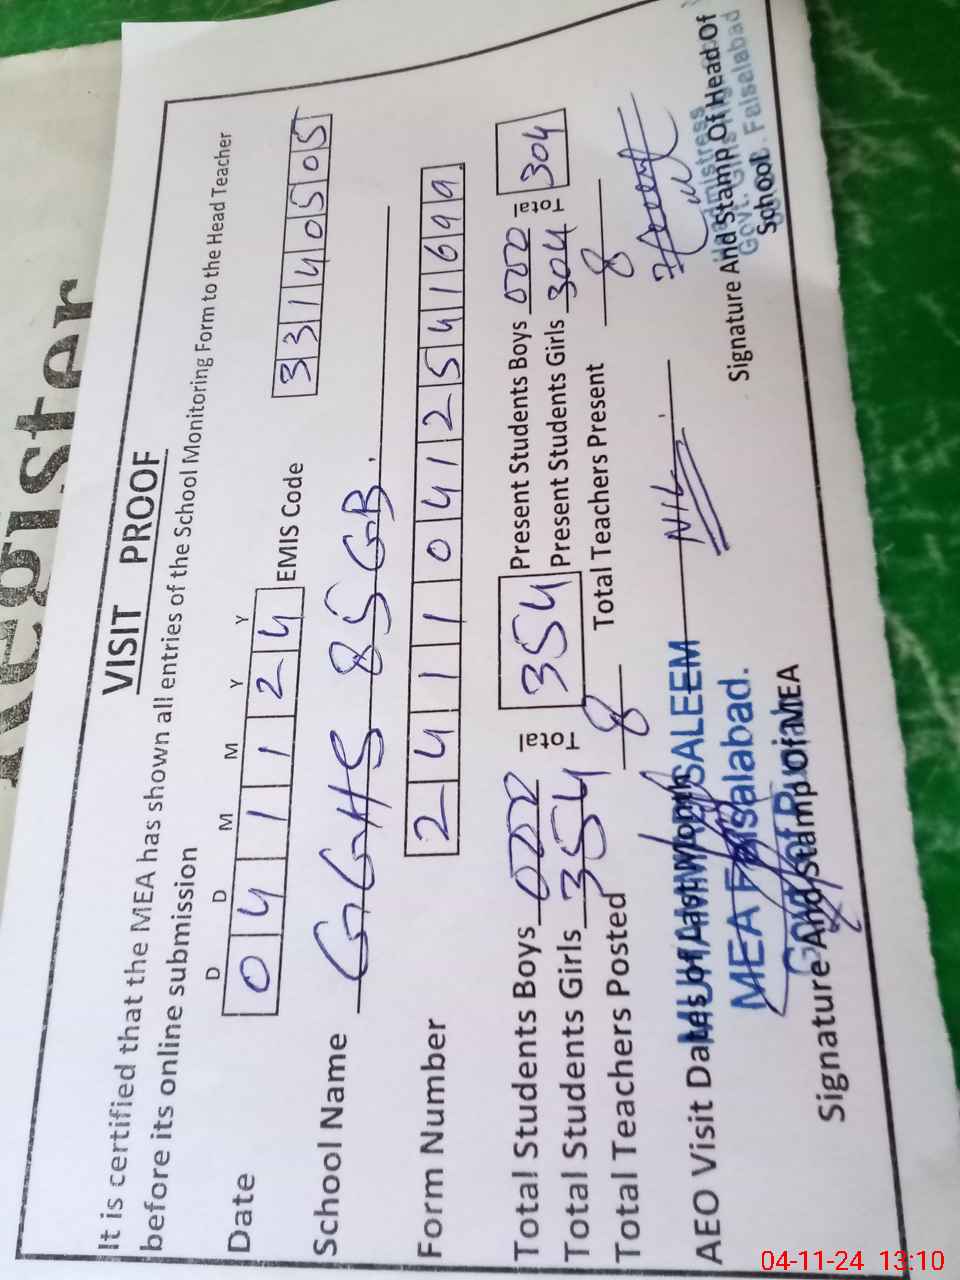 Register
VISIT PROOF
It is certified that the MEA has shown all entries of the School Monitoring Form to the Head Teacher
before its online submission
D D M M Y Y
Date 0 4 1 1 2 4 EMIS Code 3 3 1 4 0 5 0 5
School Name GGHS 85 GB.
Form Number 2 4 1 1 0 4 1 2 5 4 1 6 9 9
Total Students Boys 000 Total 354 Present Students Boys 000 Total 304
Total Students Girls 354 Present Students Girls 304
Total Teachers Posted 8 Total Teachers Present 8
AEO Visit Dates of Last Month NIL
SALEEM
MEA Faisalabad.
Signature And Stamp Of MEA
Signature And Stamp Of Head Of
School
Govt. Girls
Faisalabad
04-11-24 13:10